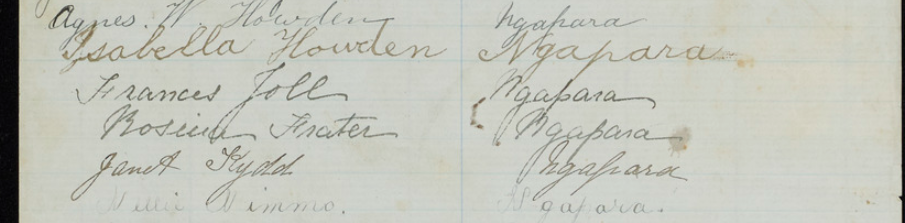 Agnes. W. Howden Ngapara
Isabella Howden Ngapara
Frances Joll Ngapara
Rosina Frater Ngapara
Janet Kydd Ngapara
Nimmo. Ngapara.